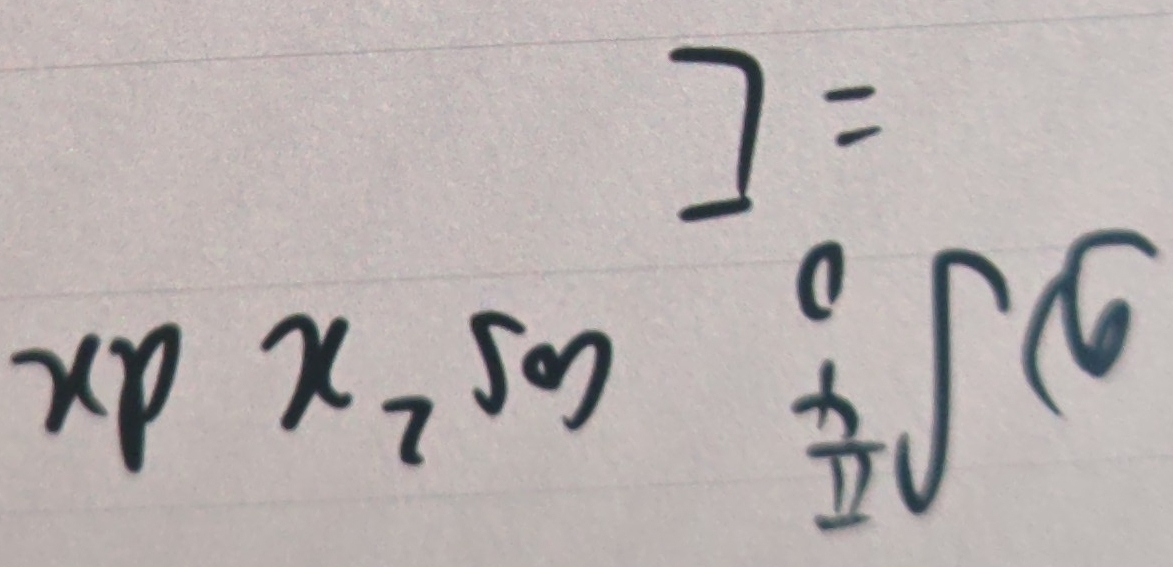 6) ∫₀^{π/4} cos² x dx
= [